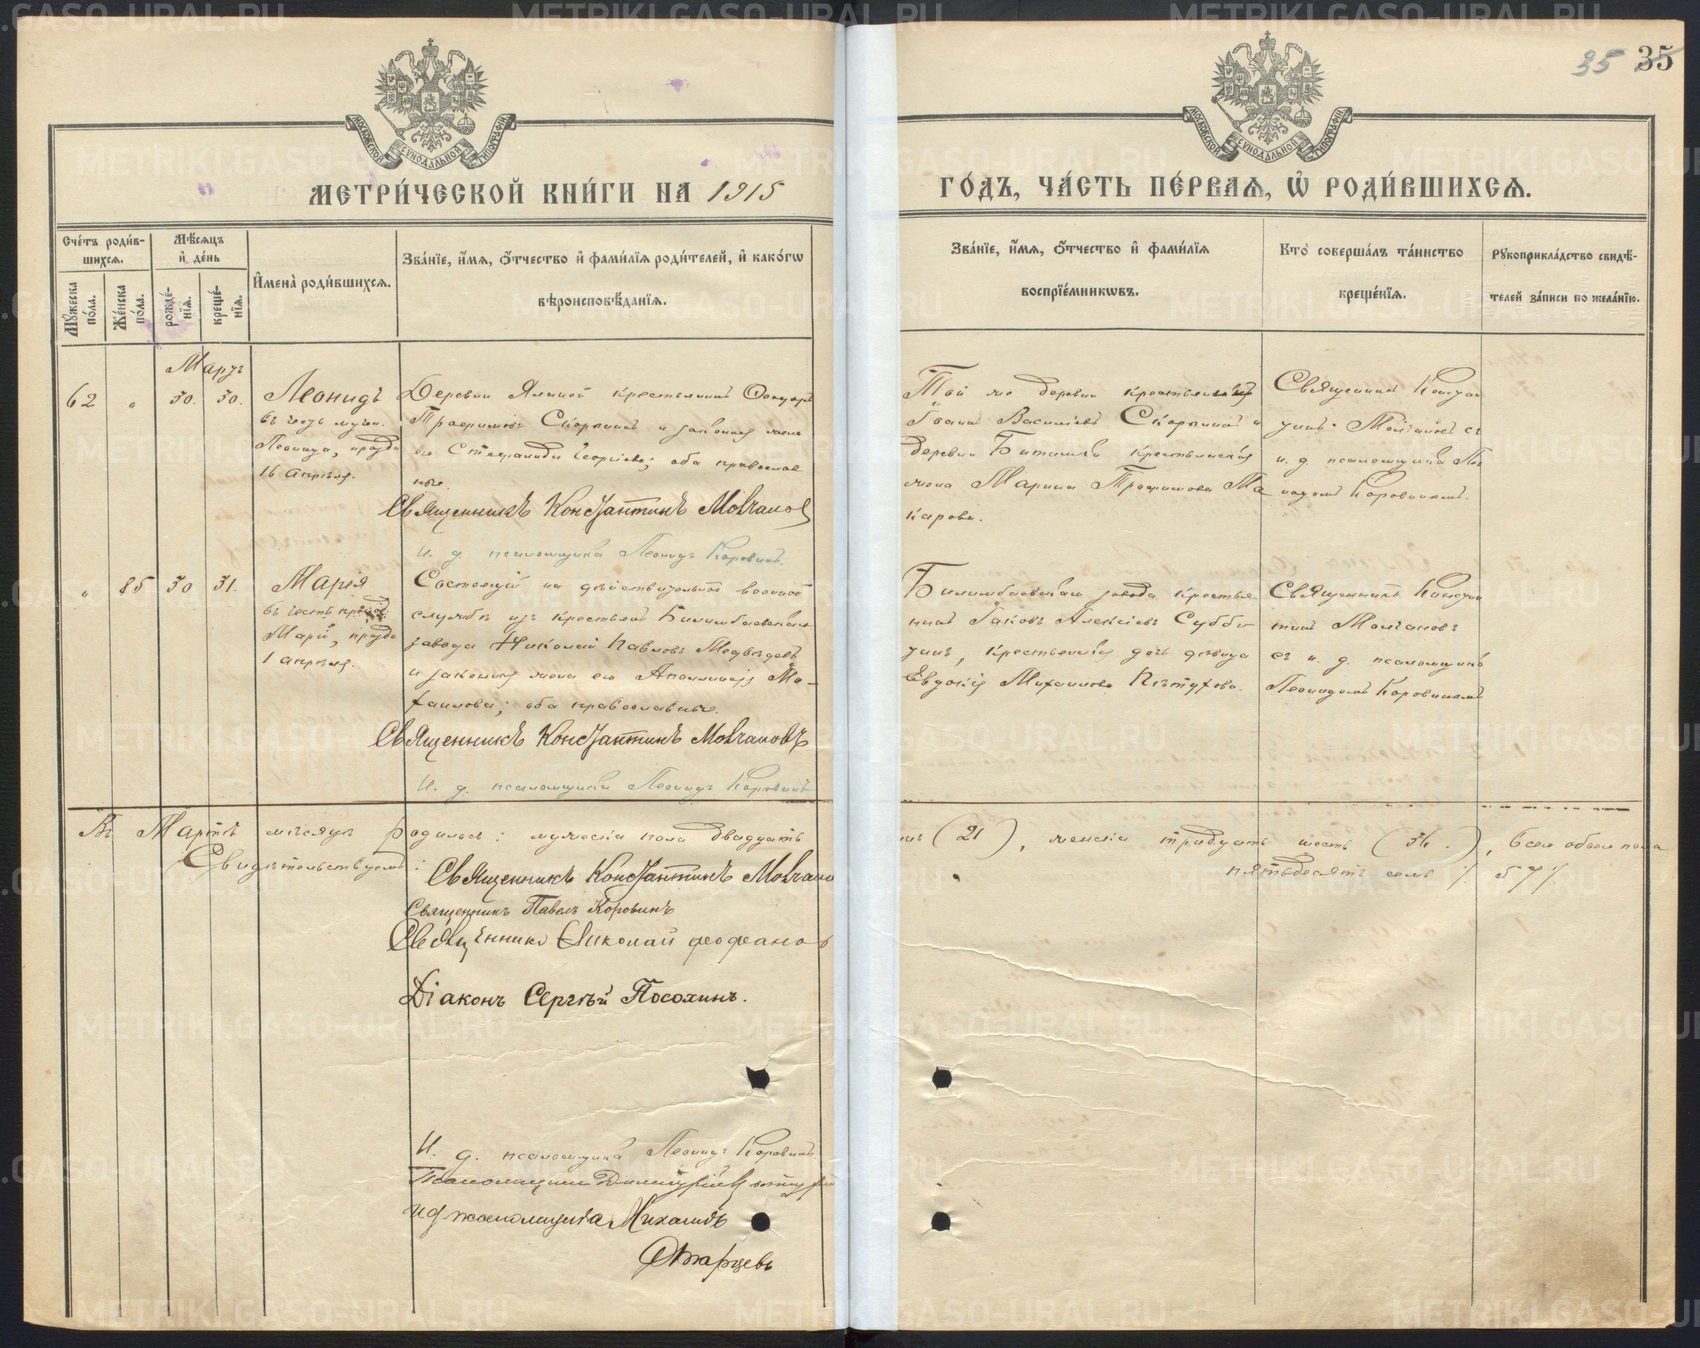 35 35
МОСКОВСКОЙ СѴНОДАЛЬНОЙ ТИПОГРАФІИ
МОСКОВСКОЙ СѴНОДАЛЬНОЙ ТИПОГРАФІИ
МЕТРИ́ЧЕСКОЙ КНИ́ГИ НА 1915
ГО́ДЪ, ЧА́СТЬ ПЕ́РВАѦ, Ѽ РОДИ́ВШИХСѦ.
Сче́тъ роди́в-
шихсѧ.
Мꙋ́жеска по́ла.
Же́нска по́ла.
Мѣ́сѧцъ
и҆ де́нь
рожде́-
нїѧ.
креще́-
нїѧ.
И҆мена̀ роди́вшихсѧ.
Зва́нїе, и҆́мѧ, о҆́тчество и҆ фами́лїѧ роди́телей, и҆ како́гѡ
вѣроисповѣ́данїѧ.
Зва́нїе, и҆́мѧ, о҆́тчество и҆ фами́лїѧ
воспрїе́мникѡвъ.
Кто̀ соверша́лъ та́инство
креще́нїѧ.
Рꙋкоприкла́дство свидѣ́-
телей за́писи по жела́нїю.
Мартъ
62 " 30. 30.
Леонидъ
въ честь мучен.
Леонида, празд
16 апрѣля.
Деревни крестьянинъ
Трофимовъ Скорынинъ и законная жена
его Стефанида Георгіева; оба православ
ные.
Священникъ Константинъ Молчанов
И. д. псаломщика Леонидъ Коровинъ
Той же деревни крестьянинъ
Іоаннъ Васильевъ Скорынинъ и
деревни крестьянская
жена Марина Трофимова Ма
карова.
Священникъ Констан
тинъ Молчановъ съ
и. д. псаломщика Ле
онидомъ Коровинымъ.
" 85 30 31.
Марія
въ честь препод.
Маріи, празд
1 апрѣля.
Состоящій на дѣйствительной военной
службѣ изъ крестьянъ Билимбаевскаго
завода Николай Павловъ Медвѣдевъ
и законная жена его Аполлинарія Ми-
хаилова; оба православные.
Священникъ Константинъ Молчановъ
И. д. псаломщика Леонидъ Коровинъ
Билимбаевскаго завода крестья
нинъ Іаковъ Алексіевъ Суббо
тинъ, крестьянская дочь дѣвица
Евдокія Михаилова Пѣтухова.
Священникъ Констан
тинъ Молчановъ
съ и. д. псаломщика
Леонидомъ Коровинымъ
Въ Мартѣ мѣсяцѣ родилось: мужеска пола двадцать
инъ (21), женска тридцать шесть (36.), всего обоего пола
пятьдесятъ семь /57/.
Свидѣтельствуемъ:
Священникъ Константинъ Молчано
Священникъ Павелъ Коровинъ
Священникъ Николай Феофанов
Діаконъ Сергѣй Посохинъ.
И. д. псаломщика Леонидъ Коровинъ
Псаломщикъ
и д псаломщика Михаилъ
Старцевъ
METRIKI.GASO-URAL.RU